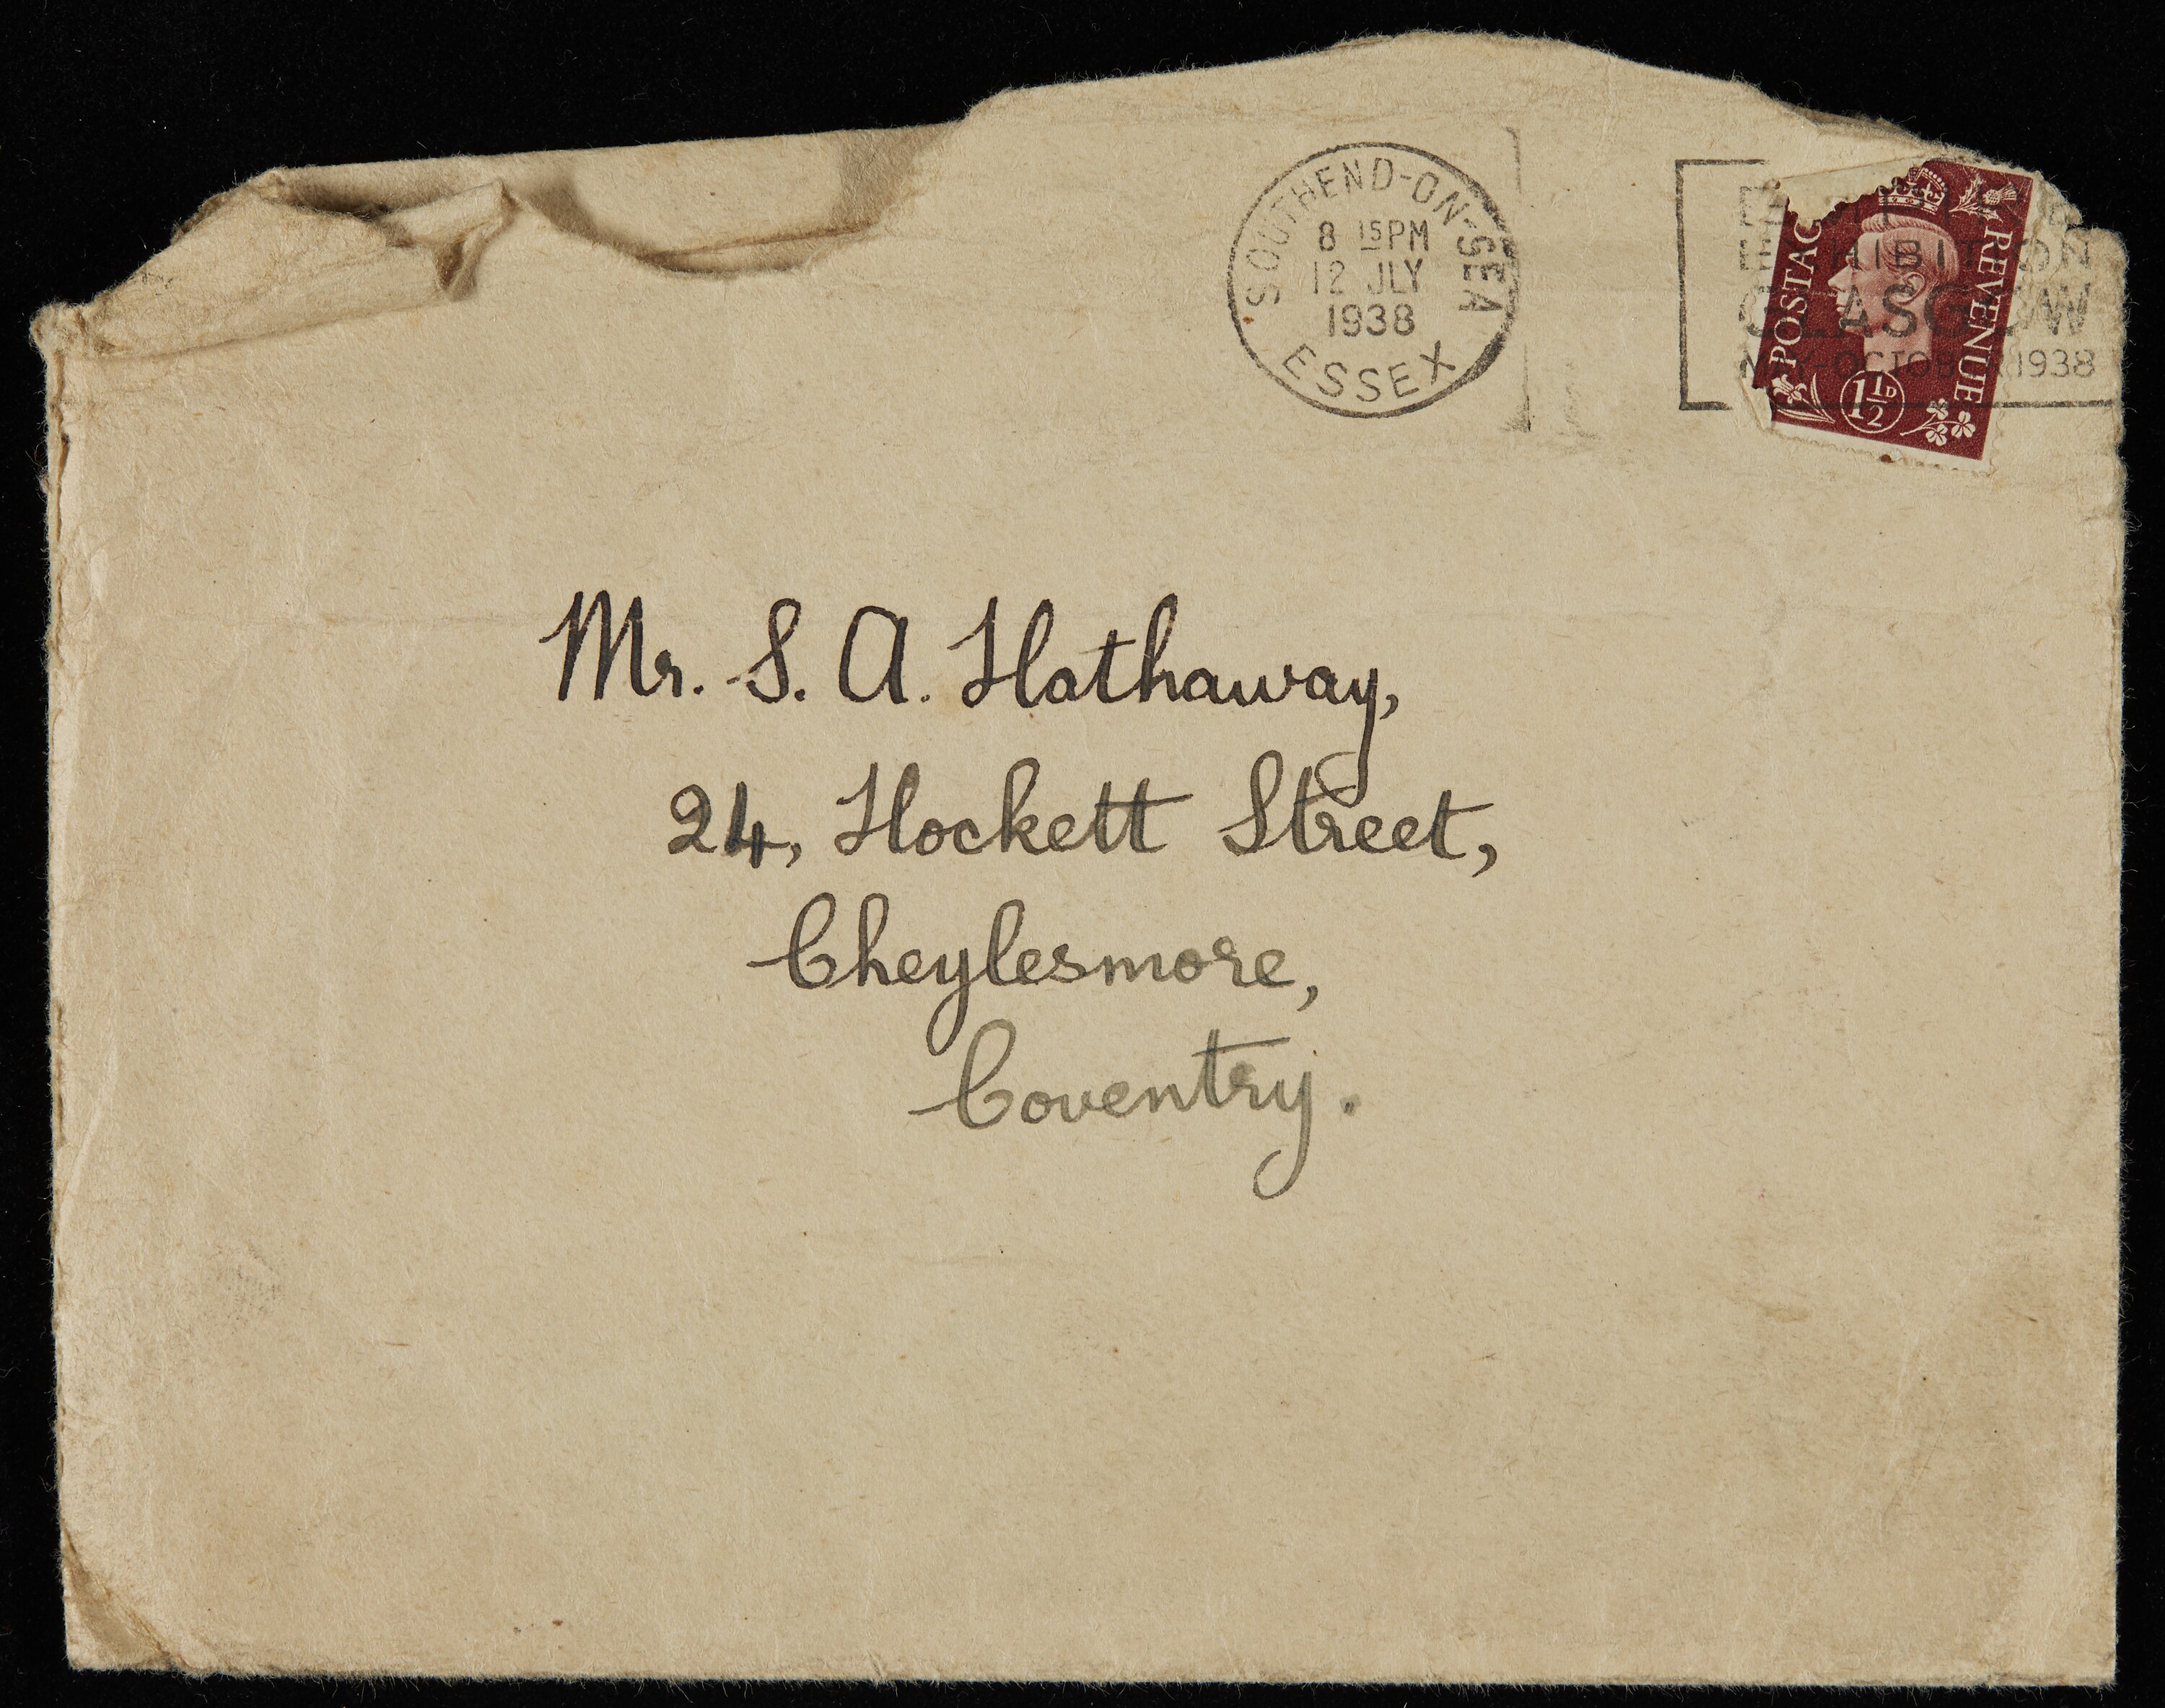 SOUTHEND-ON-SEA
8 15PM
12 JLY
1938
ESSEX
EXHIBITION
GLASGOW
MAY-OCTOBER 1938
POSTAG
REVENUE
1½D
Mr. S. A. Hathaway,
24, Hockett Street,
Cheylesmore,
Coventry.